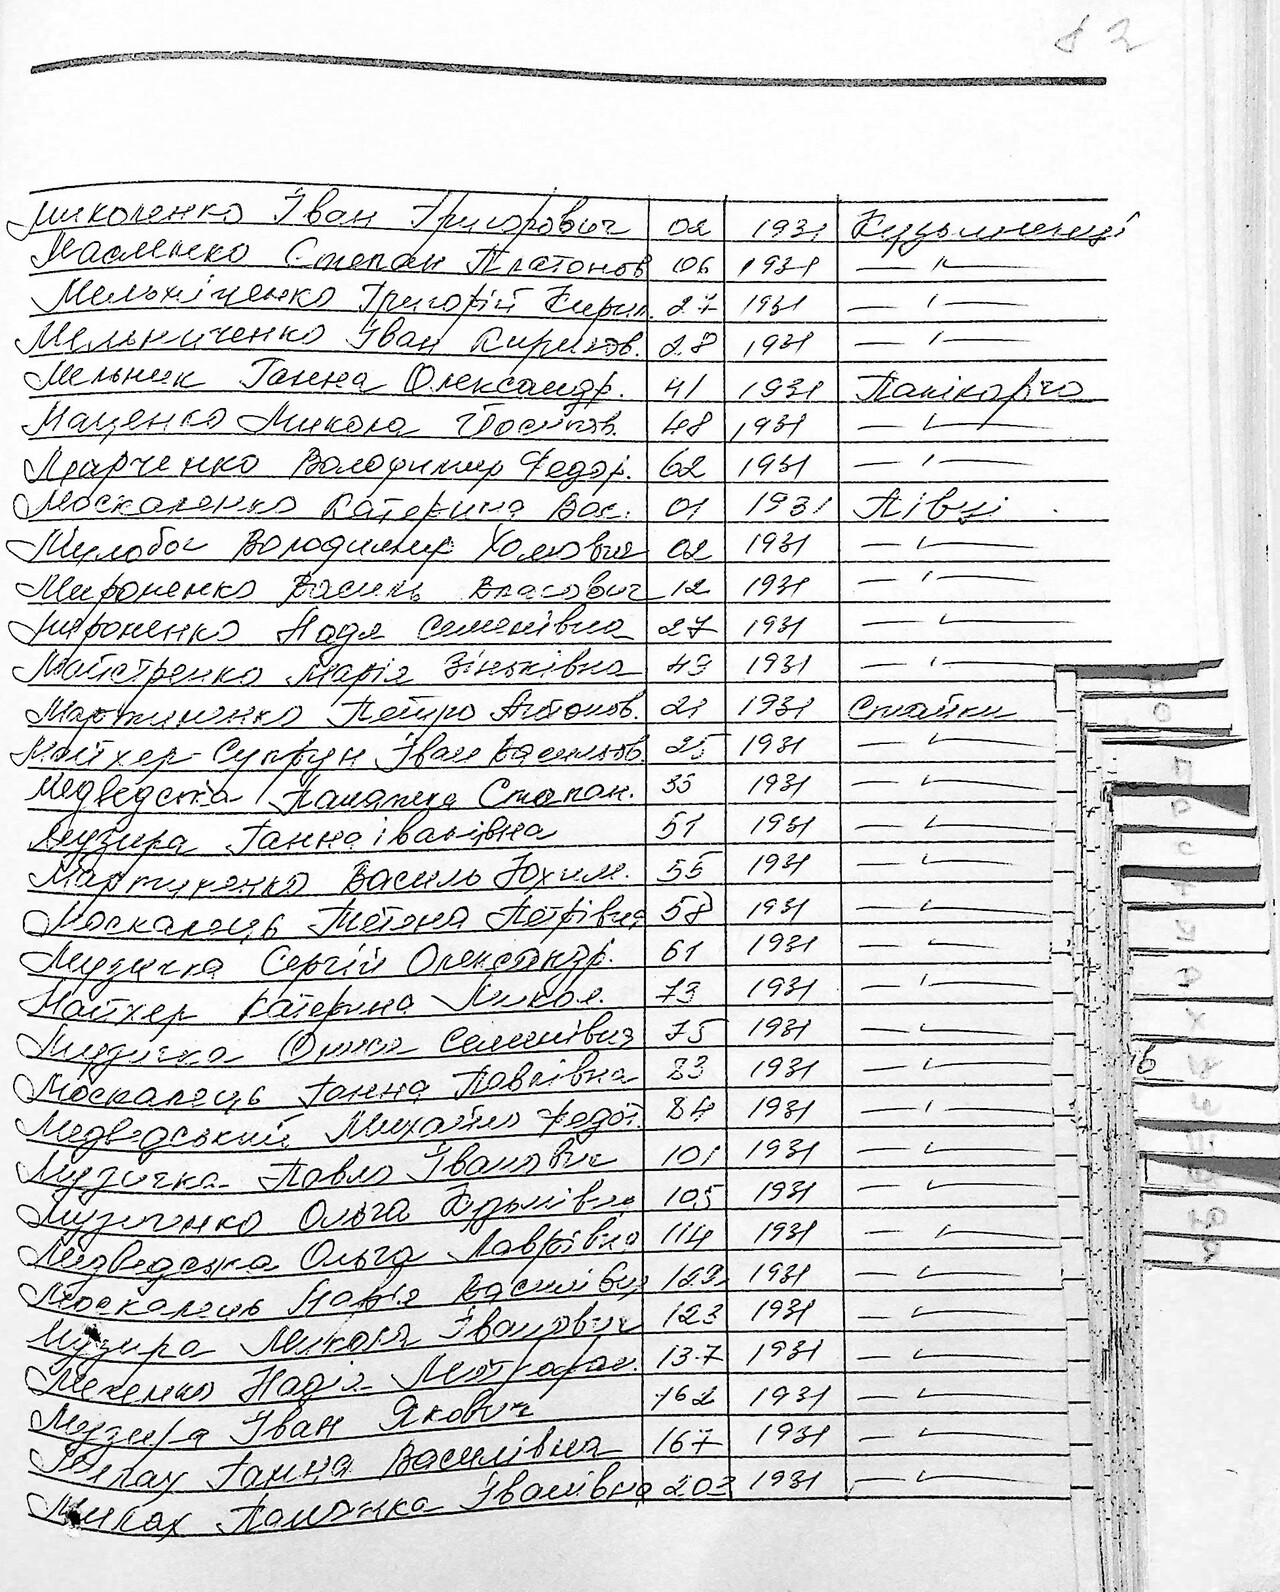 82
Миколенко Іван Григорович 02 1931 Кузьминці
Масленко Степан Платонов 06 1931 — " —
Мельніченко Григорій Кирил. 27 1931 — " —
Мельниченко Іван Кирилов. 28 1931 — " —
Мельник Ганна Олександр. 41 1931 Панікарча
Маценко Микола Йосипов. 48 1931 — " —
Марченко Володимир Федор. 62 1931 — " —
Москаленко Катерина Вас. 01 1931 Півці
Володимир Хомович 02 1931 — " —
Мироненко Василь Власович 12 1931 — " —
Мироненко Надя Семенівна 27 1931 — " —
Майстренко Марія Зіньківна 49 1931 — " —
Мартиненко Петро Антонов. 21 1931 Стайки
Майхер-Супрун Іван Васильов. 25 1931 — " —
Медведська Степан. 35 1931 — " —
Музира Ганна Іванівна 51 1931 — " —
Мартиненко Василь Юхим. 55 1931 — " —
Москалець Тетяна Петрівна 58 1931 — " —
Музичка Сергій Олександр. 61 1931 — " —
Майхер Катерина Микол. 73 1931 — " —
Музичка Семенівна 75 1931 — " —
Москалець Ганна Павлівна 83 1931 — " —
Медведський Михайло Федот. 84 1931 — " —
Музичка Павло Іванович 101 1931 — " —
Музиченко Ольга Кузьмівна 105 1931 — " —
Медведська Ольга Лаврівна 114 1931 — " —
Москалець Марія Василівна 123 1931 — " —
Музира Микола Іванович 123 1931 — " —
Надія Митрофан. 137 1931 — " —
Музира Іван Якович 162 1931 — " —
Ганна Василівна 167 1931 — " —
Іванівна 203 1931 — " —